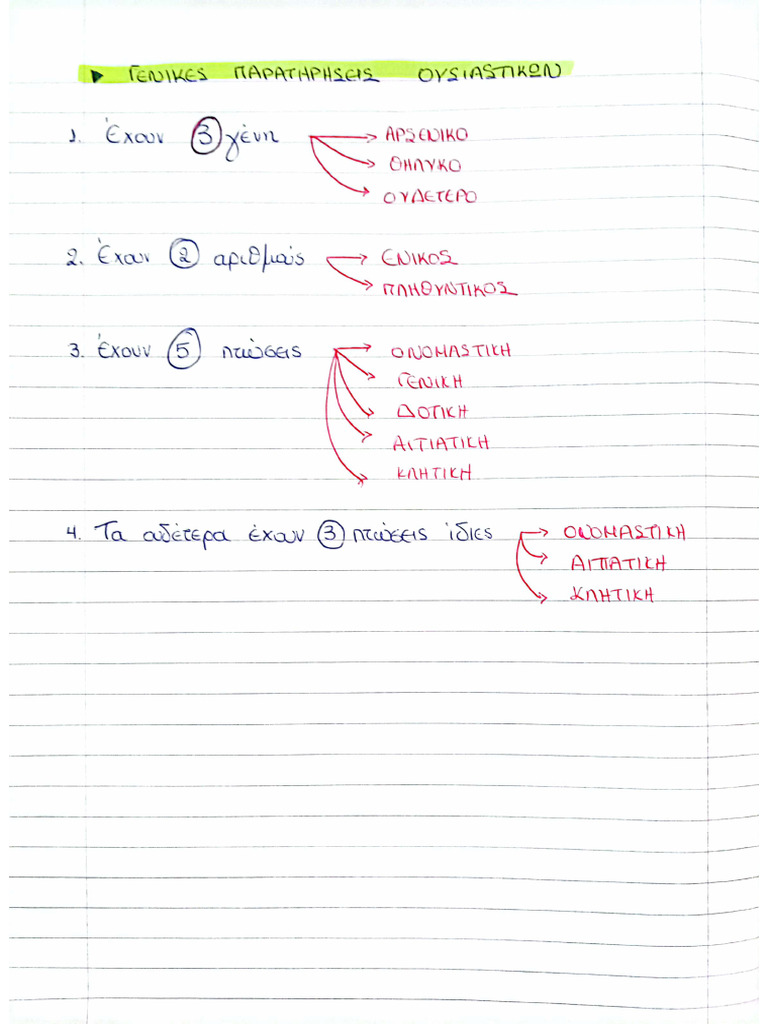 ▶ ΓΕΝΙΚΕΣ ΠΑΡΑΤΗΡΗΣΕΙΣ ΟΥΣΙΑΣΤΙΚΩΝ
1. Έχουν 3 γένη → ΑΡΣΕΝΙΚΟ
→ ΘΗΛΥΚΟ
→ ΟΥΔΕΤΕΡΟ
2. Έχουν 2 αριθμούς → ΕΝΙΚΟΣ
→ ΠΛΗΘΥΝΤΙΚΟΣ
3. Έχουν 5 πτώσεις → ΟΝΟΜΑΣΤΙΚΗ
→ ΓΕΝΙΚΗ
→ ΔΟΤΙΚΗ
→ ΑΙΤΙΑΤΙΚΗ
→ ΚΛΗΤΙΚΗ
4. Τα ουδέτερα έχουν 3 πτώσεις ίδιες → ΟΝΟΜΑΣΤΙΚΗ
→ ΑΙΤΙΑΤΙΚΗ
→ ΚΛΗΤΙΚΗ